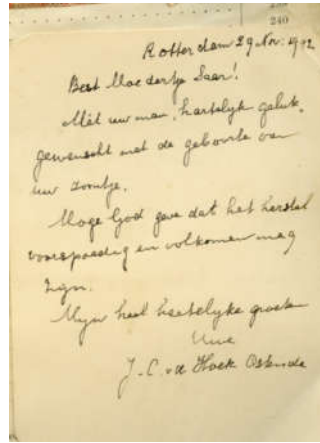 240
Rotterdam 29 Nov. 1942
Best Moedertje Saar!
Mèt uw man, hartelijk geluk
gewenscht met de geboorte van
uw zoontje.
Moge God geve dat het herstel
voorspoedig en volkomen mag
zijn.
Mijn heel hartelijke groeten
Uwe
J. C. vd Hoek